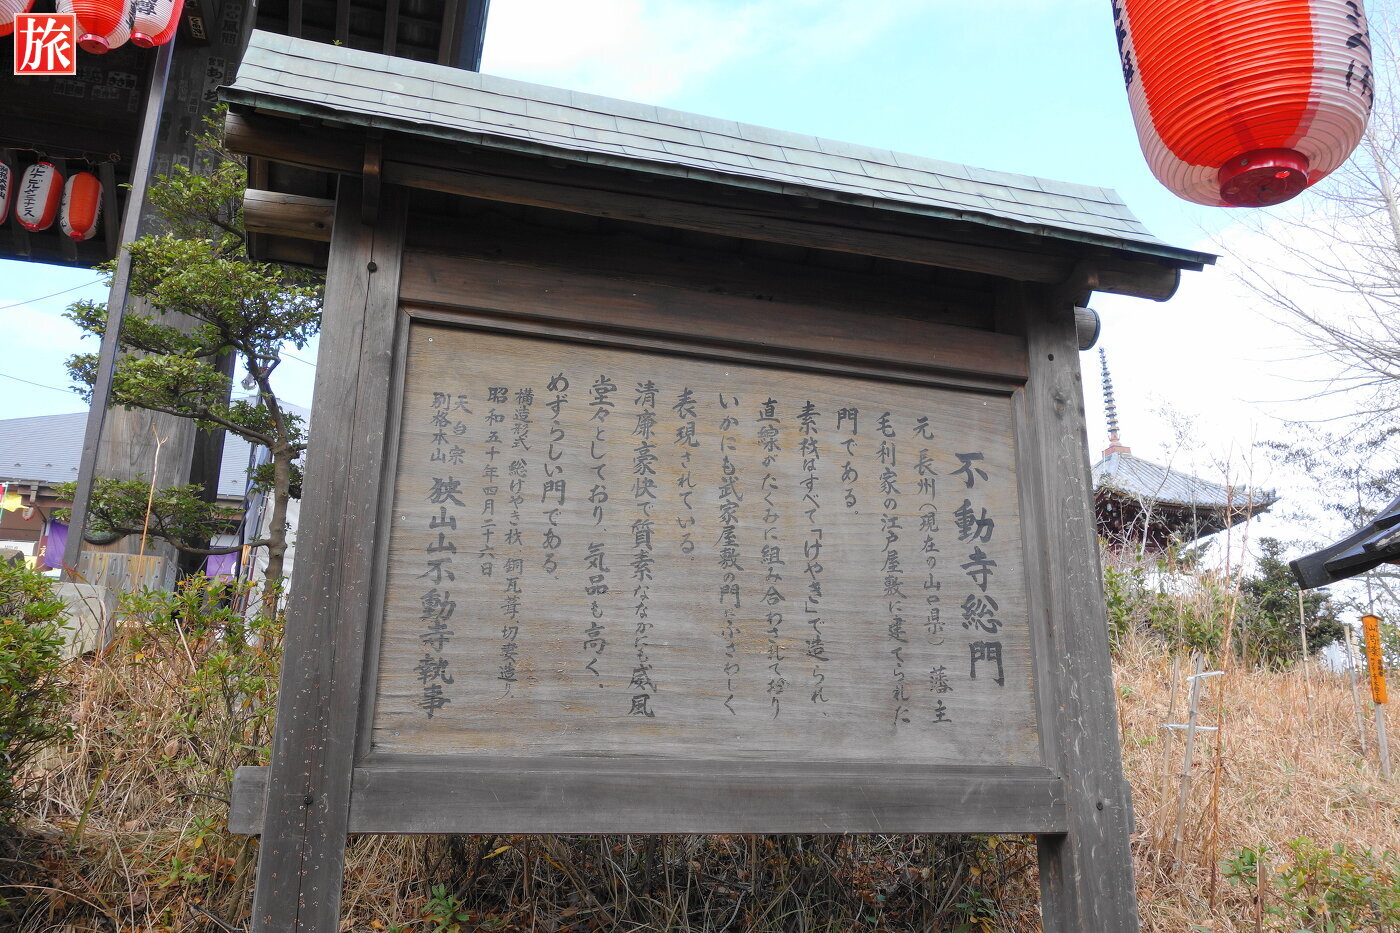 旅
不動寺総門
元 長州(現在の山口県) 藩主
毛利家の江戸屋敷に建てられた
門である。
素材はすべて「けやき」で造られ、
直線がたくみに組み合わされて誇り
いかにも武家屋敷の門にふさわしく
表現されている
清廉豪快で質素ななかにも威風
堂々としており、気品も高く、
めずらしい門である。
構造形式 総けやき材、銅瓦葺、切妻造り
昭和五十年四月二十六日
天台宗
別格本山 狭山山不動寺執事